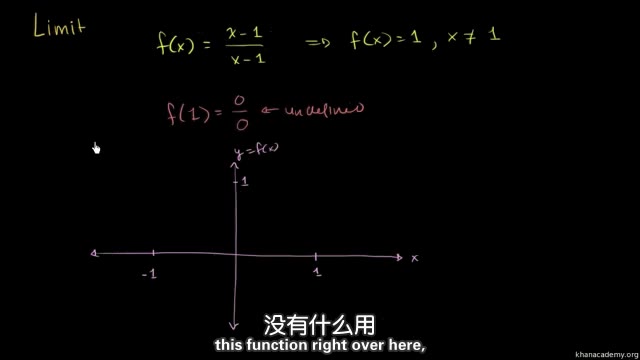 Limit
f(x) = x-1 / x-1 ⇒ f(x) = 1, x ≠ 1
f(1) = 0 / 0 ← undefined
y = f(x)
1
x
-1 1
没有什么用
this function right over here,
khanacademy.org